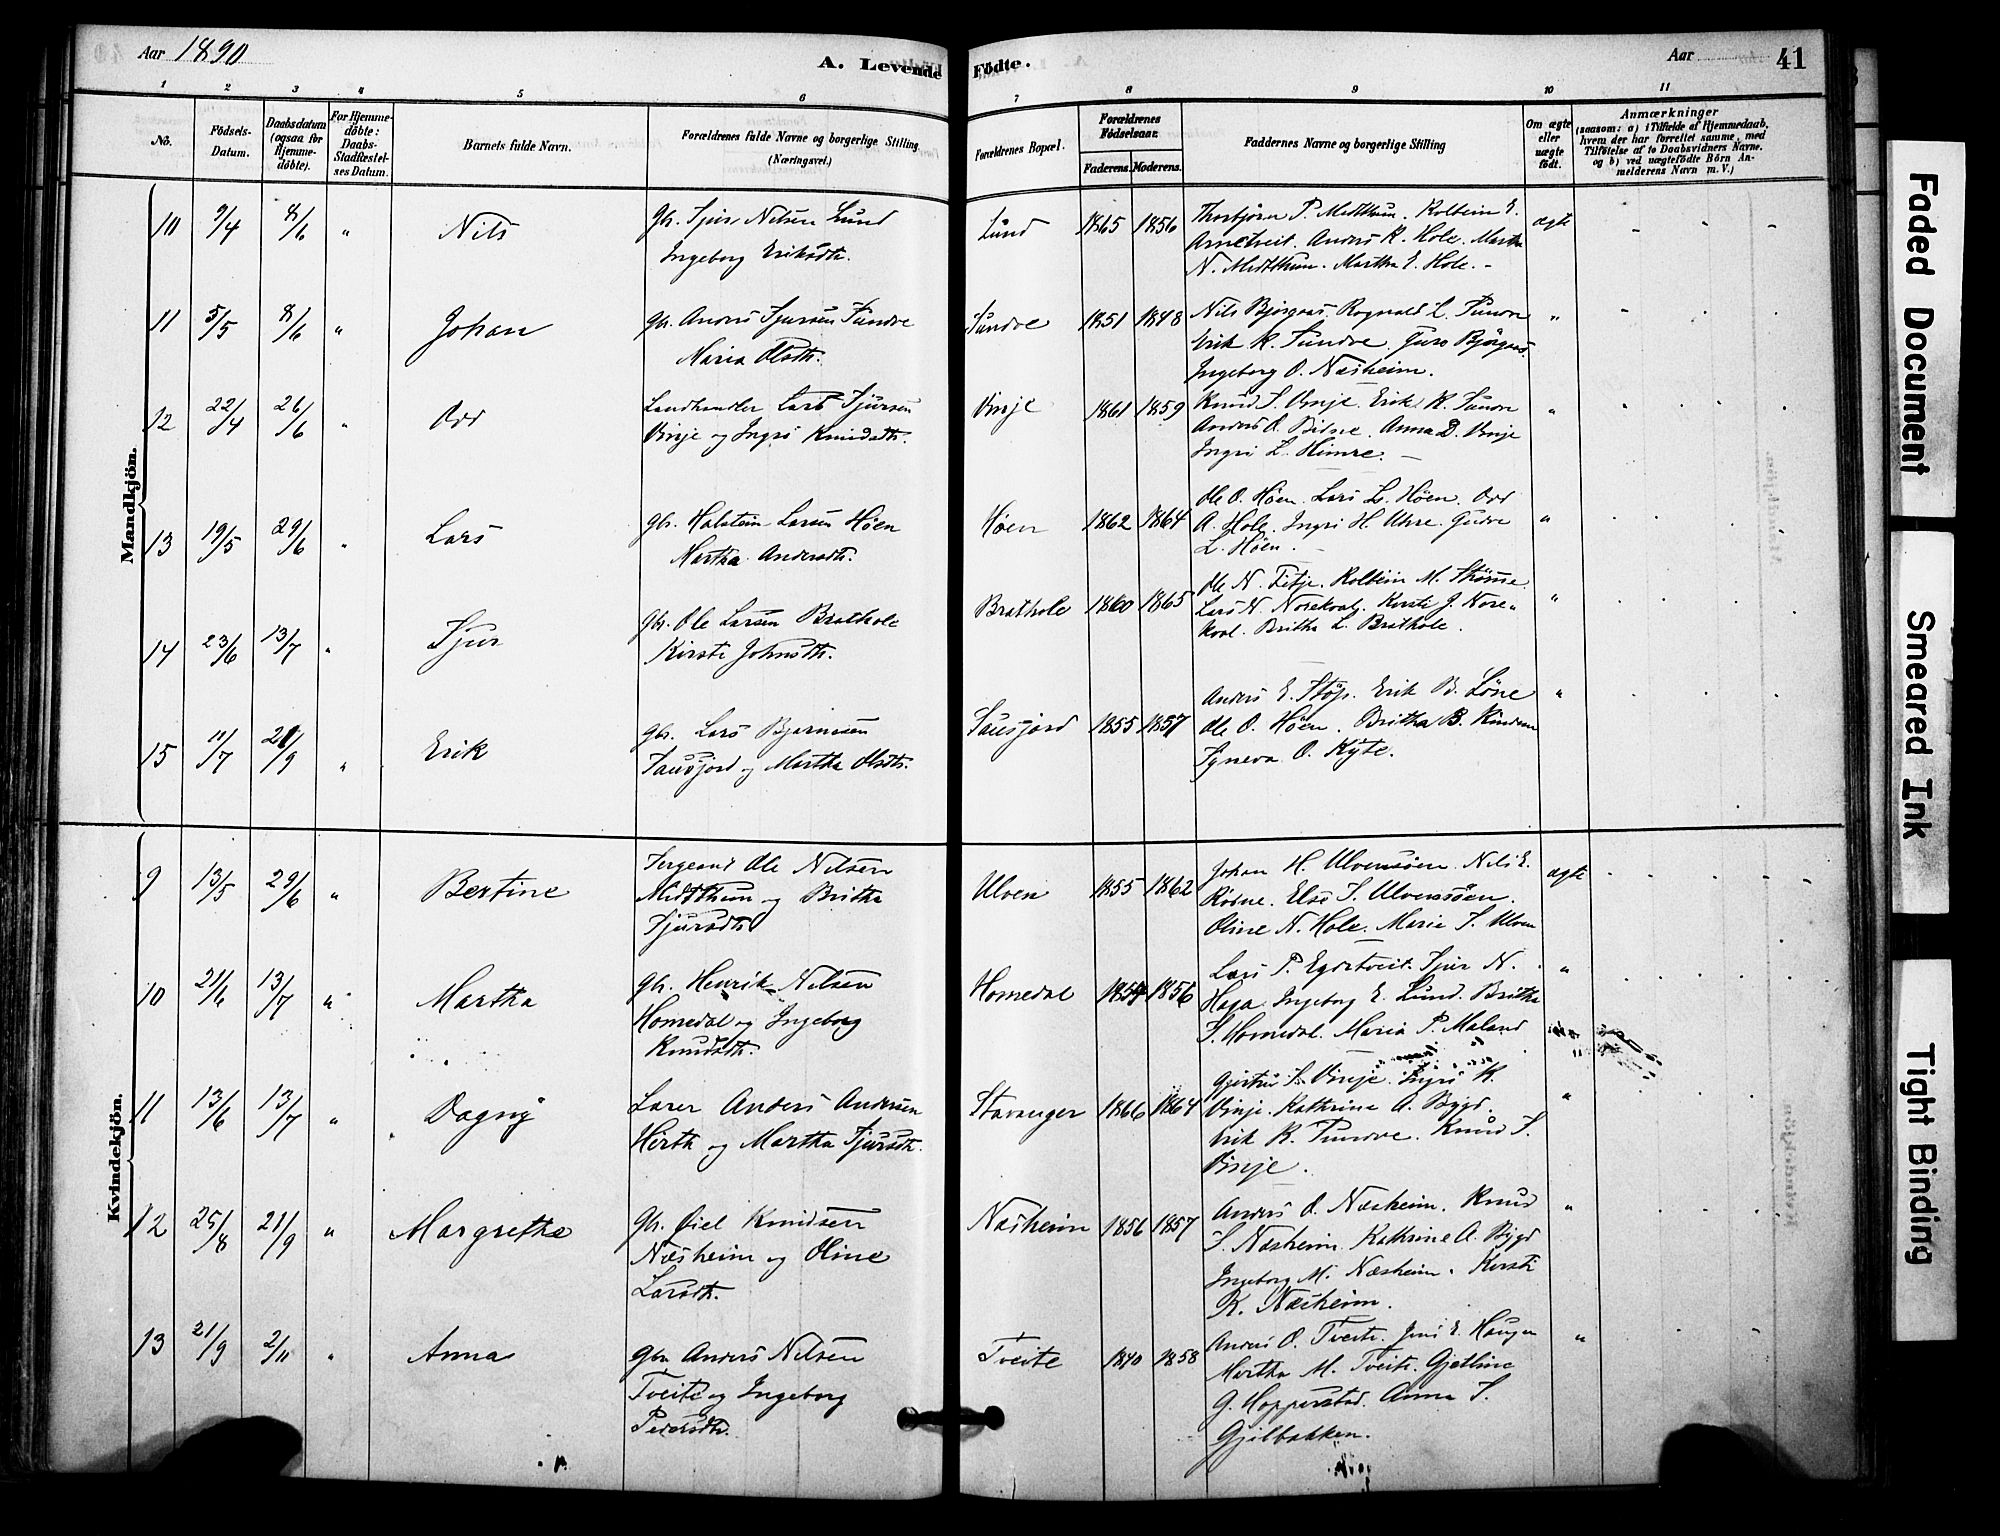 Aar 1890
A. Levende Fødte.
Aar
41
1 2 3 4 5 6 7 8 9 10 11
No.
Fødsels-
Datum.
Daabsdatum
(ogsaa for
Hjemme-
døbte).
For Hjemme-
døbte:
Daabs-
Stadfæstel-
ses Datum.
Barnets fulde Navn.
Forældrenes fulde Navne og borgerlige Stilling
(Næringsvei.)
Forældrenes Bopæl.
Forældrenes
Fødselsaar.
Faderens. Moderens.
Faddernes Navne og borgerlige Stilling
Om ægte
eller
uægte
født.
Anmærkninger
(saasom: a) i Tilfælde af Hjemmedaab,
hvem der har forrettet samme, med
Tilføielse af to Daabsvidners Navne.
og b) ved uægtefødte Børn An-
melderens Navn m. V.)
Mandkjøn.
10 9/4 8/6 " Nils
Gbr. Sjur Nilsen Lund
Ingeborg Eriksdtr.
Lund 1865 1856
Thorbjørn P. Midtthun. Kolbein E.
Arnetveit. Anders K. Hole. Martha
N. Midtthun. Martha E. Hole. -
ægte
11 5/5 8/6 " Johan
Gbr. Anders Sjursen Tundve
Maria Olsdtr.
Tundve 1851 1848
Nils Bjørgaas. Rognald L. Tundve
Erik K. Tundve. Guro Bjørgaas.
Ingeborg O. Næsheim.
"
12 22/4 26/6 " Odd
Landhandler Lars Sjursen
Vinje og Ingri Knudsdtr.
Vinje 1861 1859
Knud S. Vinje. Erik K. Tundve
Anders O. Bidne. Anna D. Vinje
Ingri L. Himle. -
"
13 19/5 29/6 " Lars
Gbr. Halstein Larsen Høen
Martha Andersdtr.
Høen 1862 1864
Ole O. Høen. Lars L. Høen. Odd
A. Hole. Ingri H. Uhre. Gudve
L. Høen. -
"
14 23/6 13/7 " Sjur
Gbr. Ole Larsen Brathole
Kirsti Johnsdtr.
Brathole 1860 1865
Ole N. Fitje. Kolbein M. Strømme.
Lars N. Norekval. Kirsti J. Nore-
kval. Britha L. Brathole.
"
15 11/7 21/9 " Erik
Gbr. Lars Bjørnesen
Sausjord og Martha Olsdtr.
Sausjord 1855 1857
Anders E. Støp. Erik B. Løne
Ole O. Høen. Britha B. Kindem
Synneva O. Kyte.
"
Kvindekjøn.
9 13/5 29/6 " Bertine
Sergeant Ole Nilsen
Midtthun og Britha
Sjursdtr.
Ulven 1855 1862
Johan H. Ulvensøen. Nils E.
Rødne. Else S. Ulvensøen.
Oline N. Hole. Marie S. Ulven
ægte
10 21/6 13/7 " Martha
Gbr. Henrik Nilsen
Homedal og Ingeborg
Knudsdtr.
Homedal 1854 1856
Lars P. Egdetveit. Sjur N.
Haga. Ingeborg E. Lund. Britha
S. Homedal. Maria P. Maland
"
11 13/6 13/7 " Dagny
Lærer Anders Andersen
Hirth og Martha Sjursdtr.
Stavanger 1866 1864
Gjertrud S. Vinje. Ingri K.
Vinje. Kathrina A. Bygd.
Erik K. Tundve. Knud S.
Vinje.
"
12 25/8 21/9 " Margretha
Gbr. Eiel Knudsen
Næsheim og Oline
Larsdtr.
Næsheim 1856 1857
Anders O. Næsheim. Knud
S. Næsheim. Kathrine A. Bygd
Ingeborg M. Næsheim. Kirsti
K. Næsheim.
"
13 21/9 2/11 " Anna
Gbr. Anders Nilsen
Tveite og Ingeborg
Pedersdtr.
Tveite 1840 1858
Anders O. Tveite. Jens E. Haugen
Martha M. Tveite. Gjetline
G. Hopperstad. Anna S.
Gjelbakken.
"
Faded Document
Smeared Ink
Tight Binding